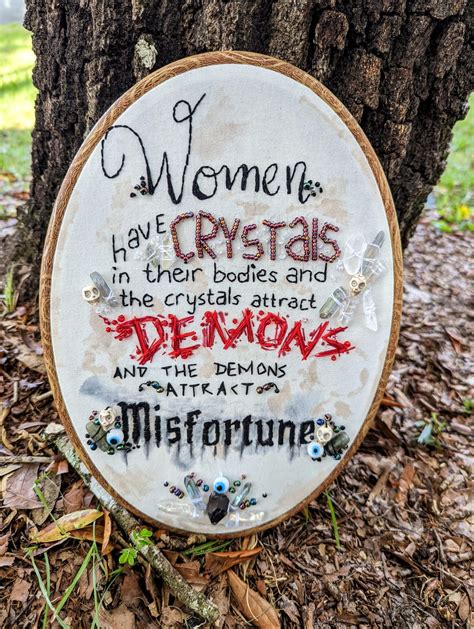 Women
have CRYSTALS
in their bodies and
the crystals attract
DEMONS
AND THE DEMONS
ATTRACT
Misfortune